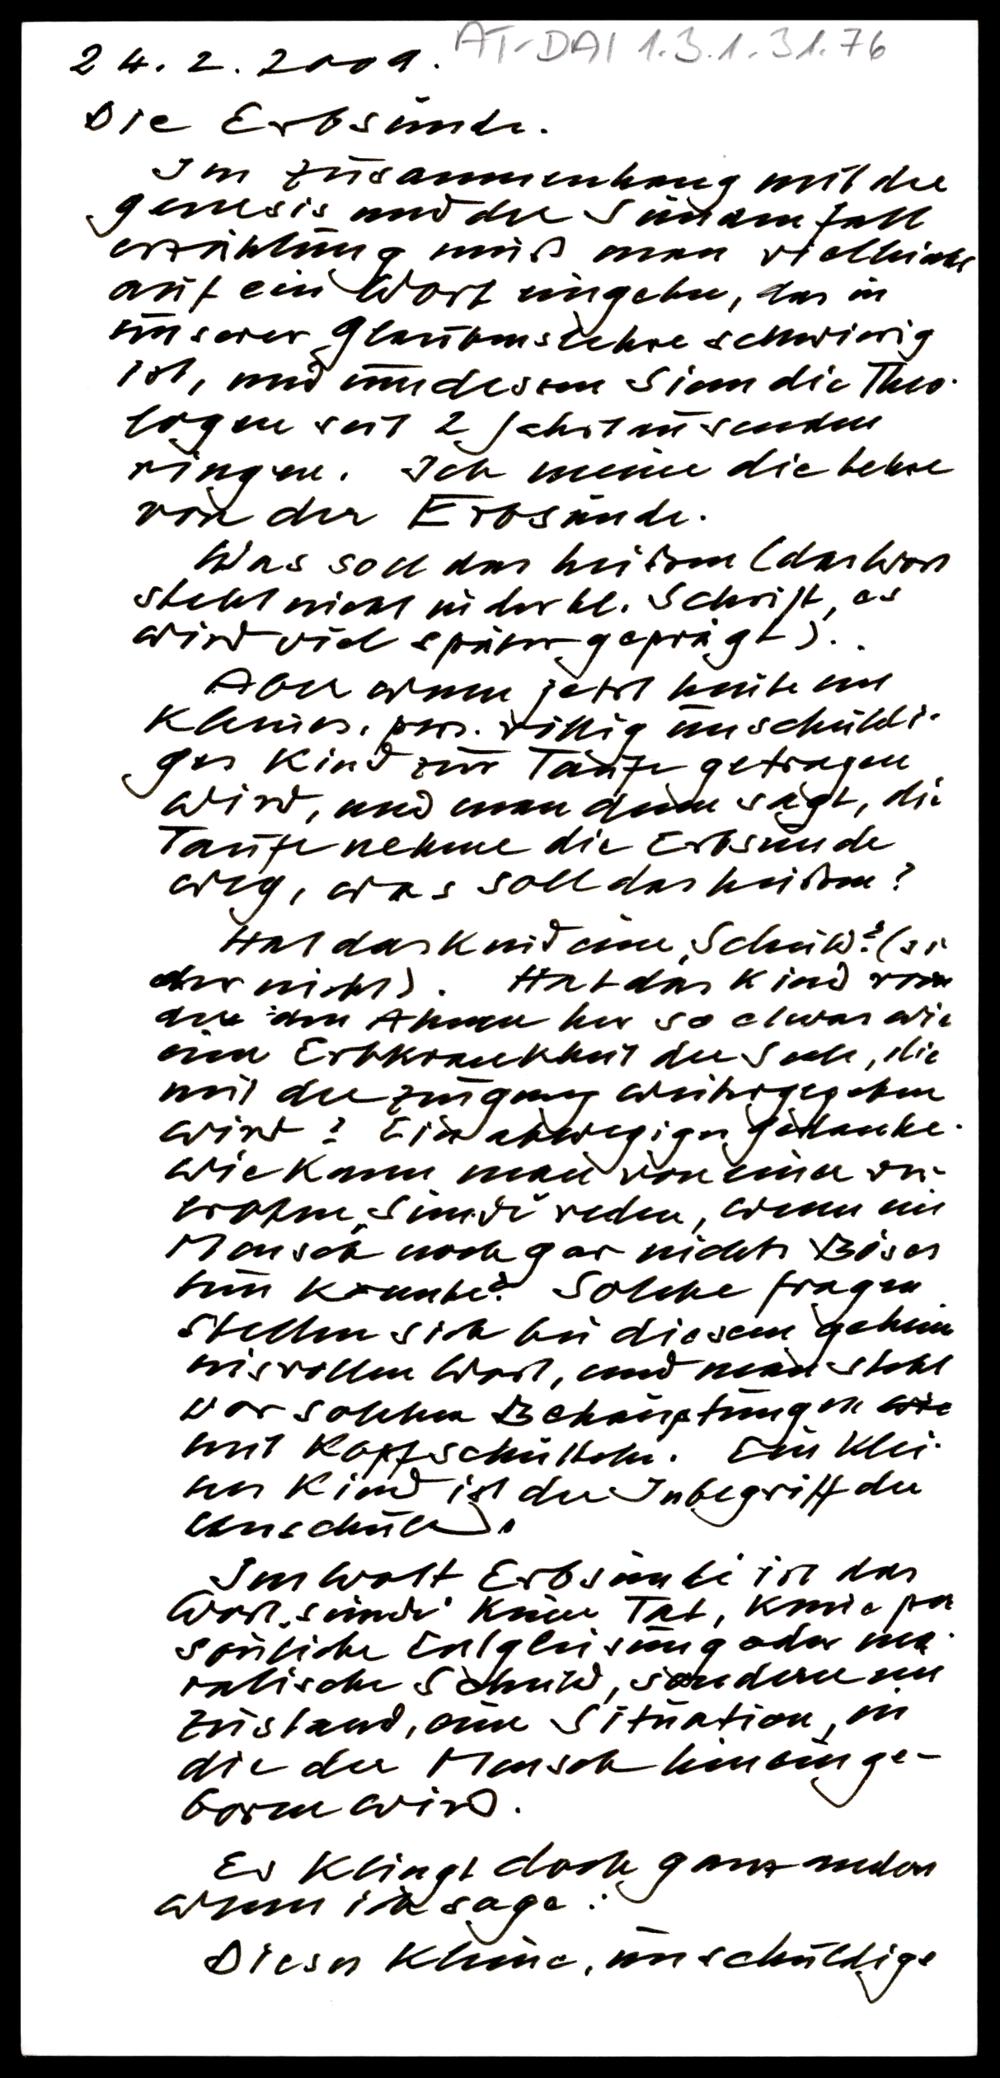 AT-DAI 1.3.1.31.76
24.2.2009.
Die Erbsünde.
Im Zusammenhang mit der
Genesis und der Sündenfall
erzählung muß man vielleicht
auf ein Wort eingehen, das in
unserer Glaubenslehre schwierig
ist, und um dessen Sinn die Theo-
logen seit 2 Jahrtausenden
ringen. Ich meine die Lehre
von der Erbsünde.
Was soll das heißen (das Wort
steht nicht in der hl. Schrift, es
wird viel später geprägt).
Aber wenn jetzt heute ein
kleines, pers. völlig unschuldi-
ges Kind zur Taufe getragen
wird, und man dann sagt, die
Taufe nehme die Erbsünde
weg, was soll das heißen?
Hat das Kind eine „Schuld"? (si
cher nicht). Hat das Kind von
den Ahnen her so etwas wie
eine Erbkrankheit der Seele, die
mit der Zeugung weitergegeben
wird? Ein abwegiger Gedanke.
Wie kann man von einer er-
erbten „Sünde" reden, wenn ein
Mensch noch gar nichts Böses
tun konnte? Solche Fragen
stellen sich bei diesem geheim
nisvollen Wort, und man steht
vor solchen Behauptungen wie
mit Kopfschütteln. Ein klei-
nes Kind ist der Inbegriff der
Unschuld.
Im Wort Erbsünde ist das
Wort „Sünde" keine Tat, keine per
sönliche Entgleisung oder mo-
ralische Schuld, sondern ein
Zustand, eine Situation, in
die der Mensch hineinge-
boren wird.
Es klingt doch ganz anders
wenn ich sage:
Dieses kleine, unschuldige